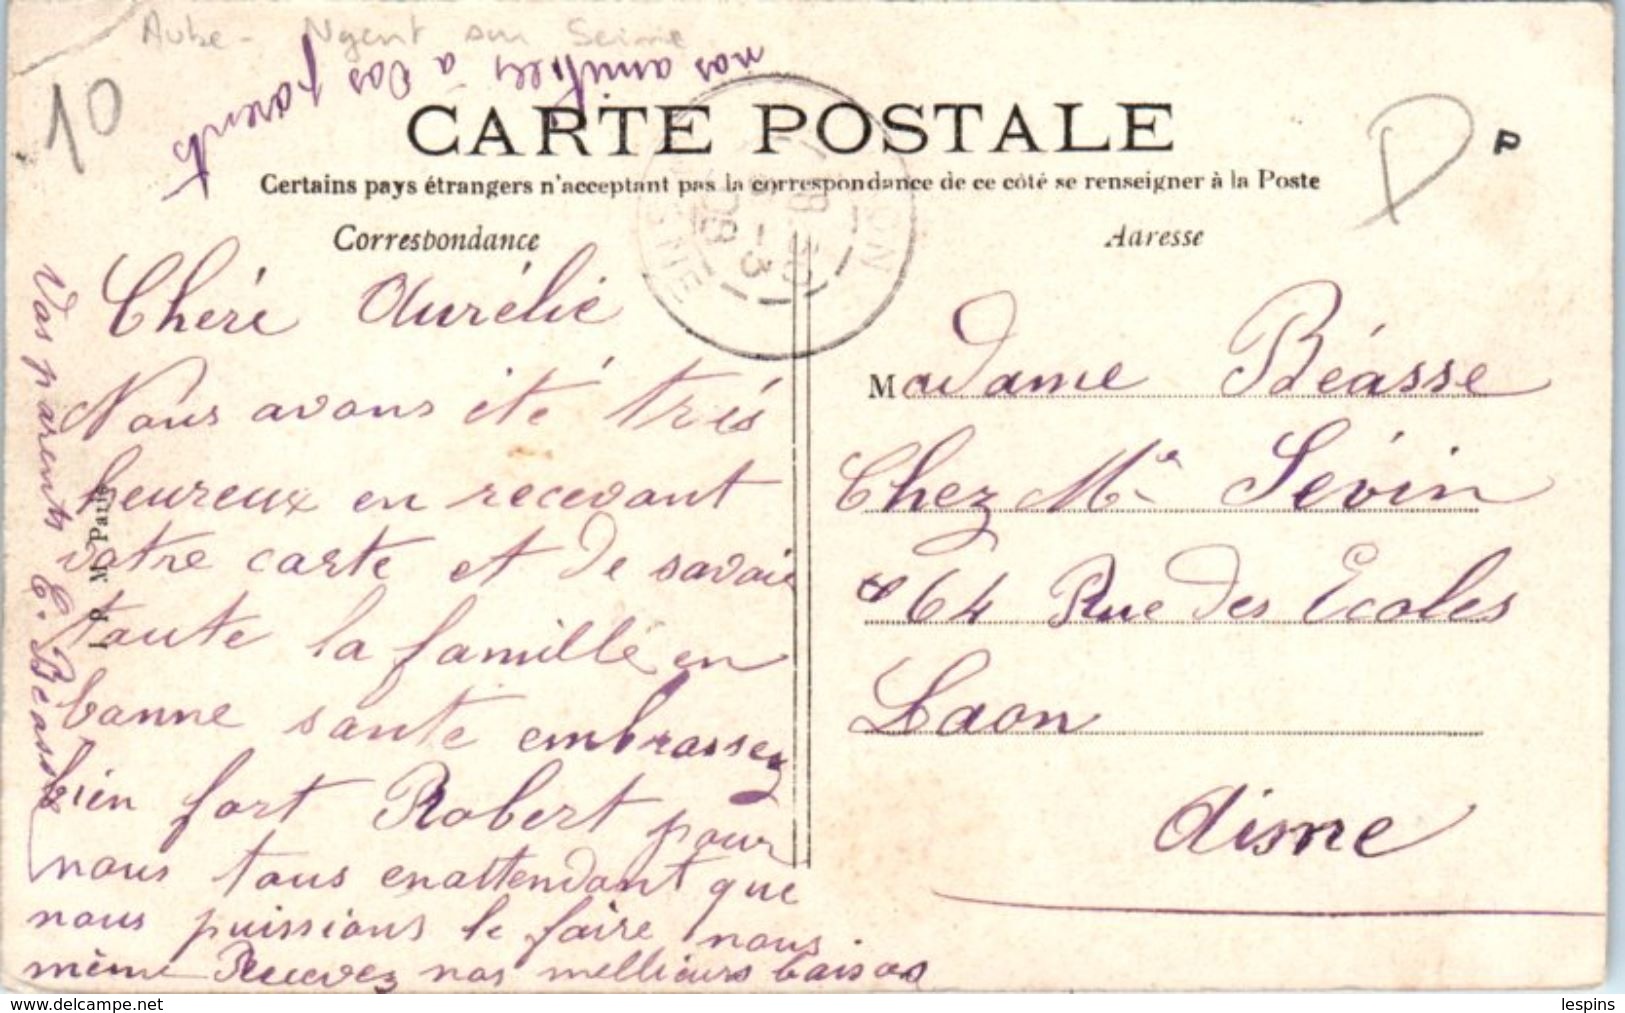 Aube - Nogent sur Seine
nos amitiés à vos parents
10
CARTE POSTALE
D
P
Certains pays étrangers n'acceptant pas la correspondance de ce côté se renseigner à la Poste
Correspondance
Adresse
Chéré Aurélie
Nous avons été très
heureux en recevant
votre carte et de savoir
toute la famille en
bonne santé embrassez
bien fort Robert pour
nous tous enattendant que
nous puissions le faire nous
même Recevez nos mellieurs baisos
Vos parents E. Béasse
I P M Paris
Madame Béasse
Chez Mr Sévin
64 Rue des Ecoles
Laon
Aisne
LAON
AISNE
lespins